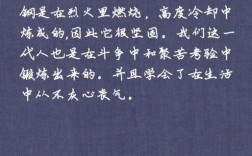 钢是在烈火里燃烧，高度冷却中
炼成的，因此它很坚固。我们这一
代人也是在斗争中和艰苦考验中
锻炼出来的。并且学会了在生活
中从不灰心丧气。